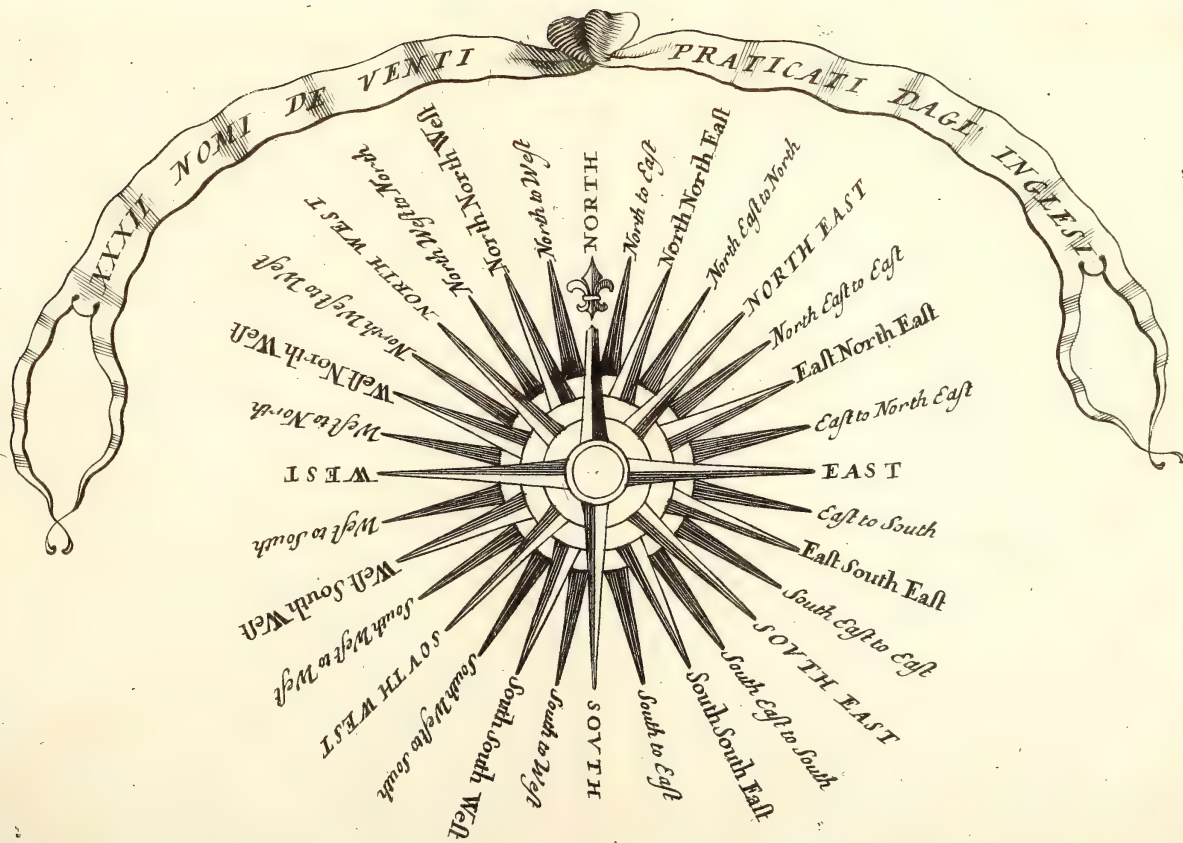 XXXII NOMI DE VENTI PRATICATI DAGL INGLESI
NORTH
North to Eaſt
North North Eaſt
North Eaſt to North
NORTH EAST
North Eaſt to Eaſt
Eaſt North Eaſt
Eaſt to North Eaſt
EAST
Eaſt to South
Eaſt South Eaſt
South Eaſt to Eaſt
SOVTH EAST
South Eaſt to South
South South Eaſt
South to Eaſt
SOVTH
South to Weſt
South South Weſt
South Weſt to South
SOVTH WEST
South Weſt to Weſt
Weſt South Weſt
Weſt to South
WEST
Weſt to North
Weſt North Weſt
North Weſt to Weſt
NORTH WEST
North Weſt to North
North North Weſt
North to Weſt